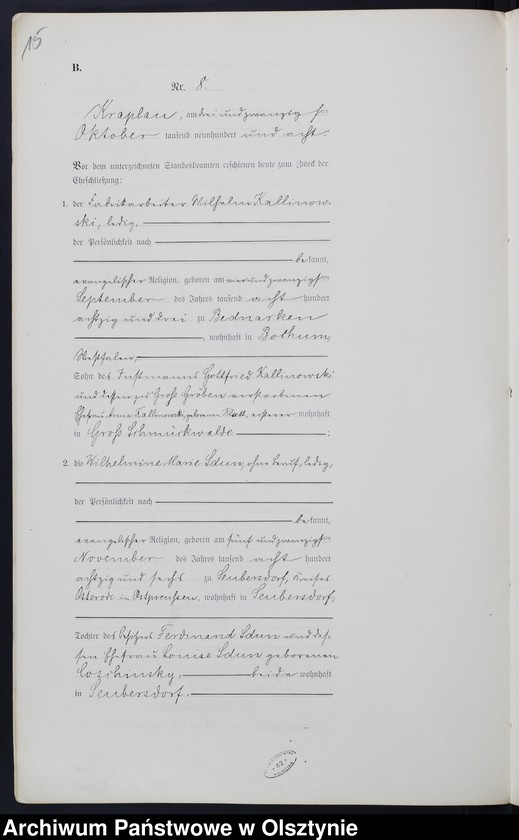 15
B.
Nr. 8
Kraplau, am drei und zwanzigsten
Oktober tausend neunhundert und acht.
Vor dem unterzeichneten Standesbeamten erschienen heute zum Zweck der
Eheschließung:
1. der Fabrikarbeiter Wilhelm Kallinow-
ski, ledig,
der Persönlichkeit nach
bekannt,
evangelischer Religion, geboren am vierundzwanzigsten
September des Jahres tausend acht hundert
achtzig und drei zu Bednarken
, wohnhaft in Bochum,
Westfalen,
Sohn des Instmanns Gottfried Kallinowski
und dessen zu Groß Gröben verstorbenen
Ehefrau Anna Kallinowski, geborenen, ersterer wohnhaft
in Groß Schmückwalde ;
2. die Wilhelmine Marie Sdun, ohne Beruf, ledig,
der Persönlichkeit nach
bekannt,
evangelischer Religion, geboren am fünf und zwanzigsten
November des Jahres tausend acht hundert
achtzig und sechs zu Seubersdorf, Kreises
Osterode in Ostpreussen, wohnhaft in Seubersdorf,
Tochter des Besitzers Ferdinand Sdun und des-
sen Ehefrau Louise Sdun geborenen
Cozihinsky, beide wohnhaft
in Seubersdorf.
Archiwum Państwowe w Olsztynie